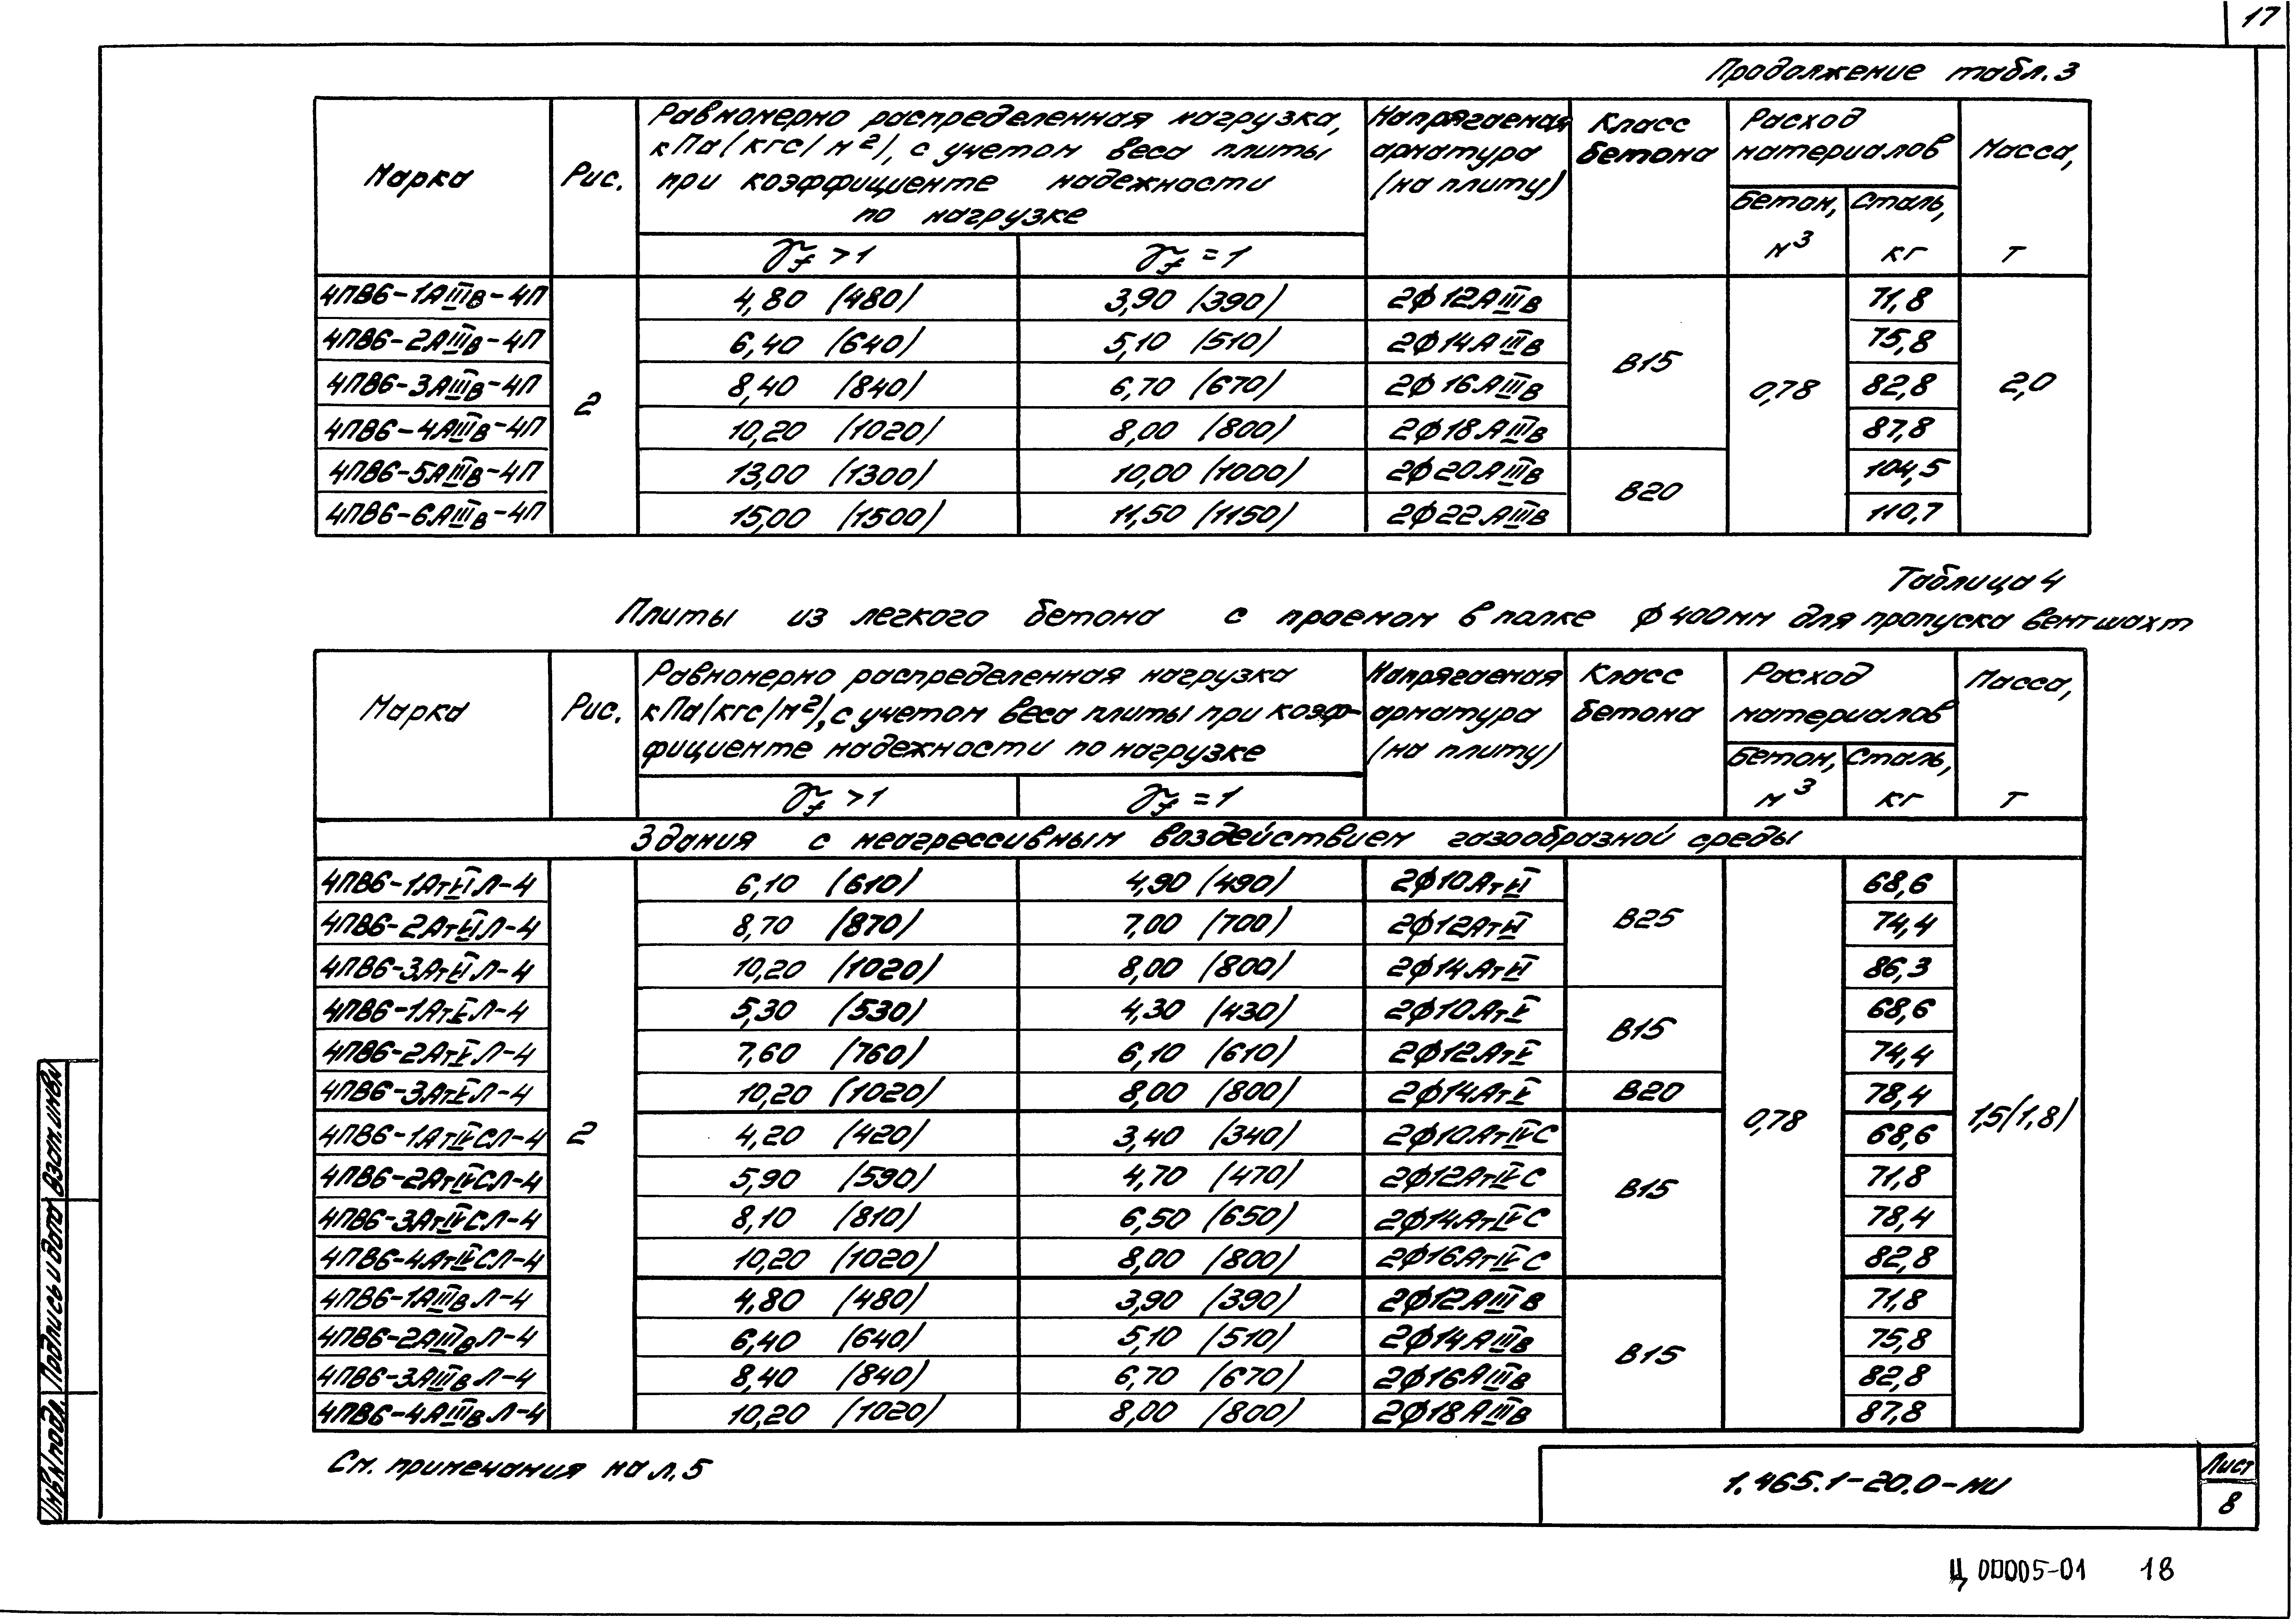 17
Продолжение табл. 3
Марка | Рис. | Равномерно распределенная нагрузка, кПа (кгс/м²), с учетом веса плиты при коэффициенте надежности по нагрузке | Напрягаемая арматура (на плиту) | Класс бетона | Расход материалов | Масса, т
γf > 1 | γf = 1 | Бетон, м³ | Сталь, кг
4ПВ6-1АШв-4П | 2 | 4,80 (480) | 3,90 (390) | 2ф12АШв | В15 | 0,78 | 71,8 | 2,0
4ПВ6-2АШв-4П | 6,40 (640) | 5,10 (510) | 2ф14АШв | 75,8
4ПВ6-3АШв-4П | 8,40 (840) | 6,70 (670) | 2ф16АШв | 82,8
4ПВ6-4АШв-4П | 10,20 (1020) | 8,00 (800) | 2ф18АШв | 87,8
4ПВ6-5АШв-4П | 13,00 (1300) | 10,00 (1000) | 2ф20АШв | В20 | 104,5
4ПВ6-6АШв-4П | 15,00 (1500) | 11,50 (1150) | 2ф22АШв | 110,7
Таблица 4
Плиты из легкого бетона с проемом в полке ф 400мм для пропуска вентшахт
Марка | Рис. | Равномерно распределенная нагрузка кПа (кгс/м²), с учетом веса плиты при коэф-фициенте надежности по нагрузке | Напрягаемая арматура (на плиту) | Класс бетона | Расход материалов | Масса, т
γf > 1 | γf = 1 | Бетон, м³ | Сталь, кг
Здания с неагрессивным воздействием газообразной среды
4ПВ6-1АтVIЛ-4 | 2 | 6,10 (610) | 4,90 (490) | 2ф10АтVI | В25 | 0,78 | 68,6 | 1,5(1,8)
4ПВ6-2АтVIЛ-4 | 8,70 (870) | 7,00 (700) | 2ф12АтVI | 74,4
4ПВ6-3АтVIЛ-4 | 10,20 (1020) | 8,00 (800) | 2ф14АтVI | 86,3
4ПВ6-1АтVЛ-4 | 5,30 (530) | 4,30 (430) | 2ф10АтV | В15 | 68,6
4ПВ6-2АтVЛ-4 | 7,60 (760) | 6,10 (610) | 2ф12АтV | 74,4
4ПВ6-3АтVЛ-4 | 10,20 (1020) | 8,00 (800) | 2ф14АтV | В20 | 78,4
4ПВ6-1АтIVСЛ-4 | 4,20 (420) | 3,40 (340) | 2ф10АтIVС | В15 | 68,6
4ПВ6-2АтIVСЛ-4 | 5,90 (590) | 4,70 (470) | 2ф12АтIVС | 71,8
4ПВ6-3АтIVСЛ-4 | 8,10 (810) | 6,50 (650) | 2ф14АтIVС | 78,4
4ПВ6-4АтIVСЛ-4 | 10,20 (1020) | 8,00 (800) | 2ф16АтIVС | 82,8
4ПВ6-1АШвЛ-4 | 4,80 (480) | 3,90 (390) | 2ф12АШв | В15 | 71,8
4ПВ6-2АШвЛ-4 | 6,40 (640) | 5,10 (510) | 2ф14АШв | 75,8
4ПВ6-3АШвЛ-4 | 8,40 (840) | 6,70 (670) | 2ф16АШв | 82,8
4ПВ6-4АШвЛ-4 | 10,20 (1020) | 8,00 (800) | 2ф18АШв | 87,8
См. примечания на л. 5
1.465.1-20.0-НИ
Лист
8
Инв.N подл. Подпись и дата Взам.инв.N
Ц 00005-01 18